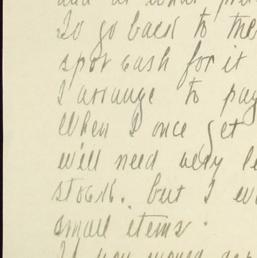 and at what pri
To go back to the
spot cash for it
I arrange to pay
When I once get
will need very le
stock. but I ev
small items.
If you